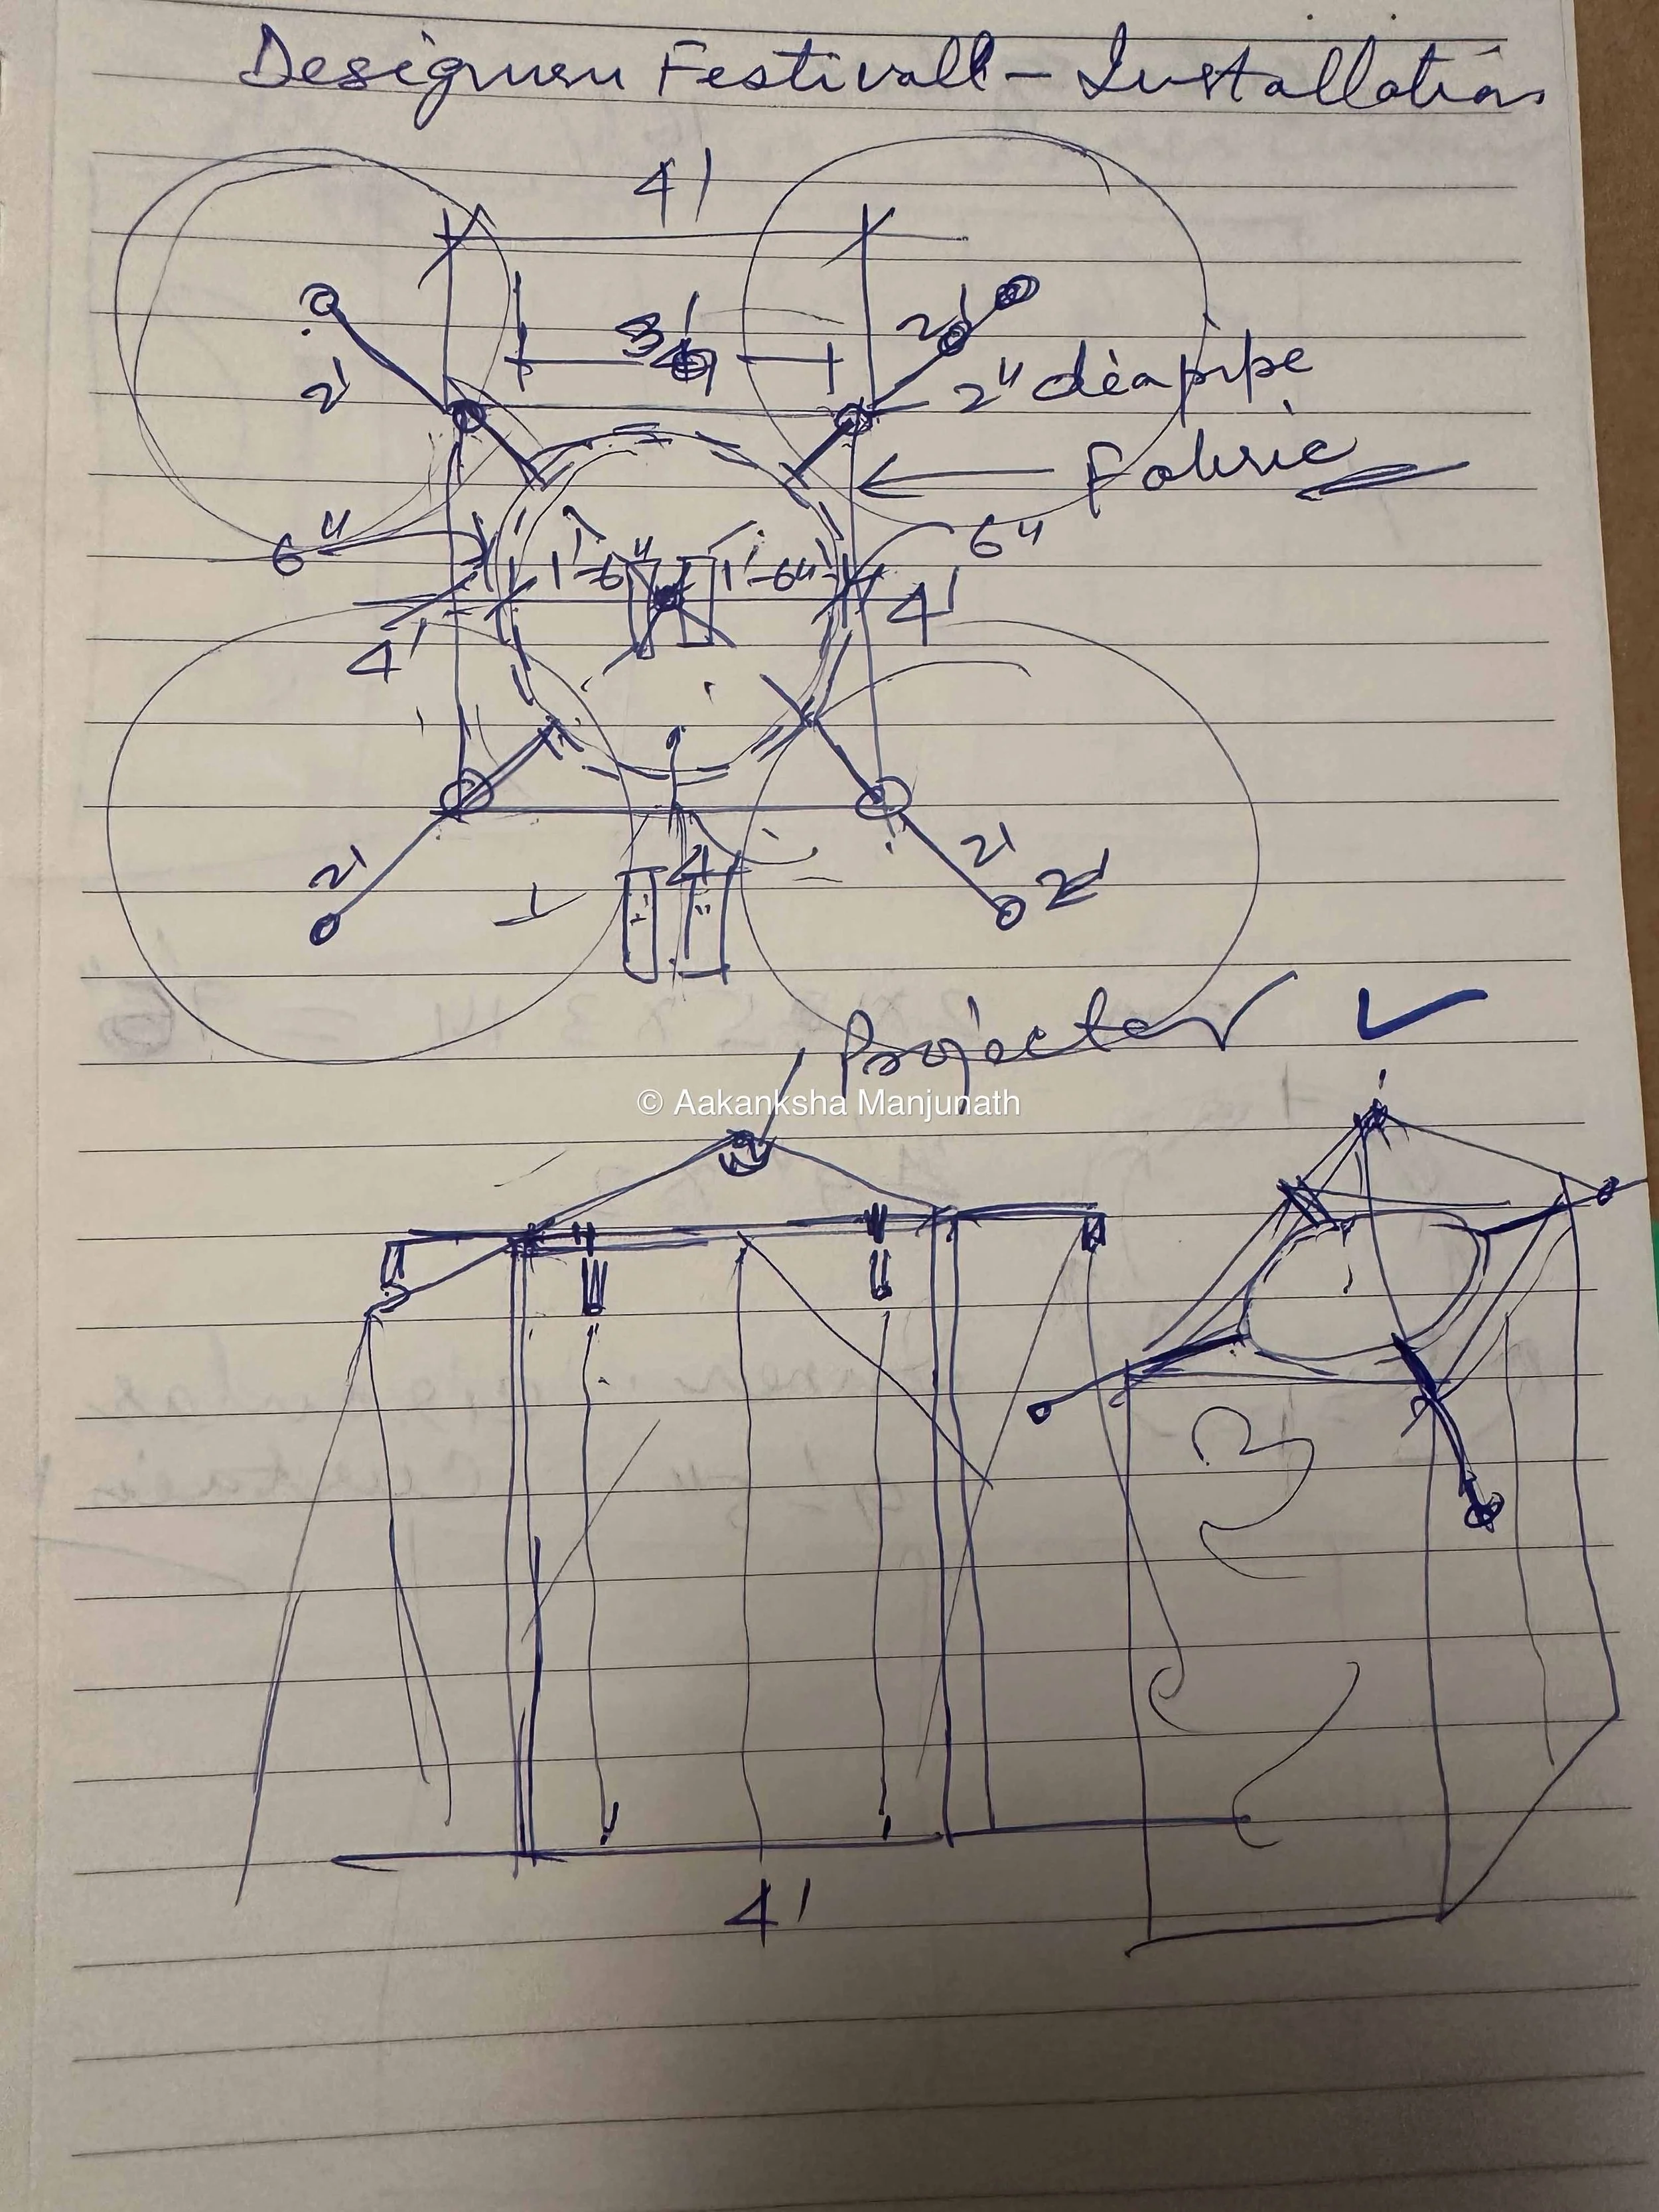 Designuru Festivall - Installation
4'
3'
2'
2'
2" dia pipe
Fabric
6"
6"
1'-6"
1'-6"
4'
4'
4'
2'
2'
2'
Projector
© Aakanksha Manjunath
4'